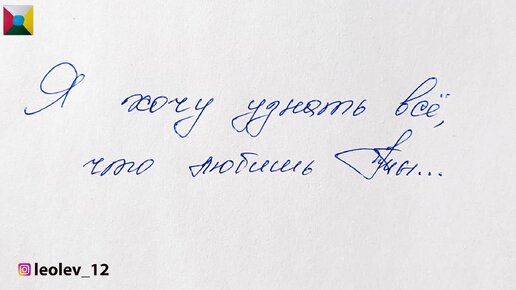 Я хочу узнать всё,
что любишь Ты...
leolev_12